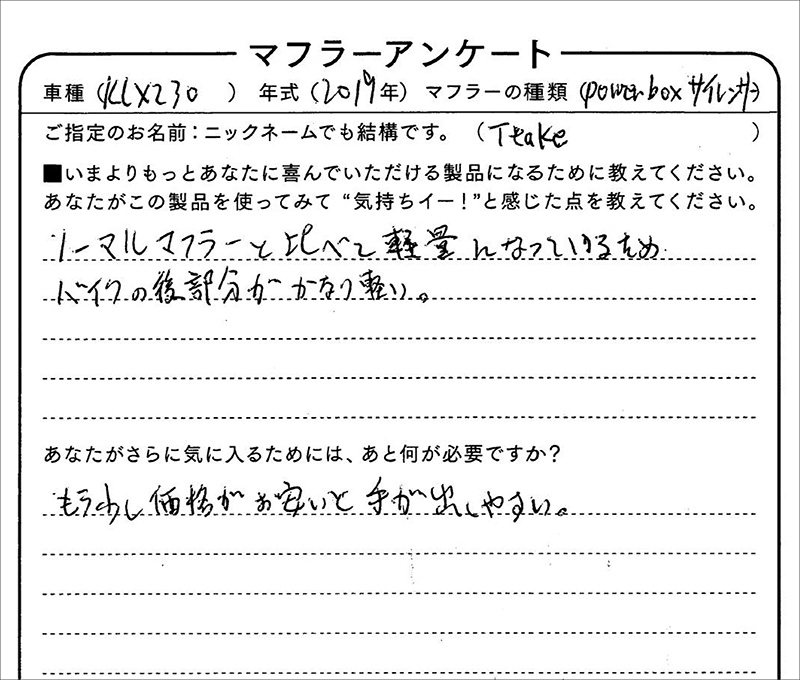 マフラーアンケート
車種（KLX230）年式（2019年）マフラーの種類（powerboxサイレンサー）
ご指定のお名前：ニックネームでも結構です。（Tteake）
■いまよりもっとあなたに喜んでいただける製品になるために教えてください。
あなたがこの製品を使ってみて“気持ちイー！”と感じた点を教えてください。
ノーマルマフラーと比べて軽量になっているため
バイクの後部分がかなり軽い。
あなたがさらに気に入るためには、あと何が必要ですか？
もう少し価格がお安いと手が出しやすい。